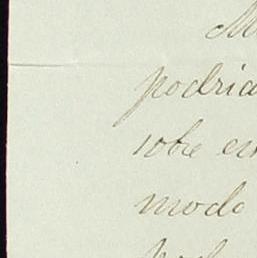 M
podria
sobre en
modo
pod